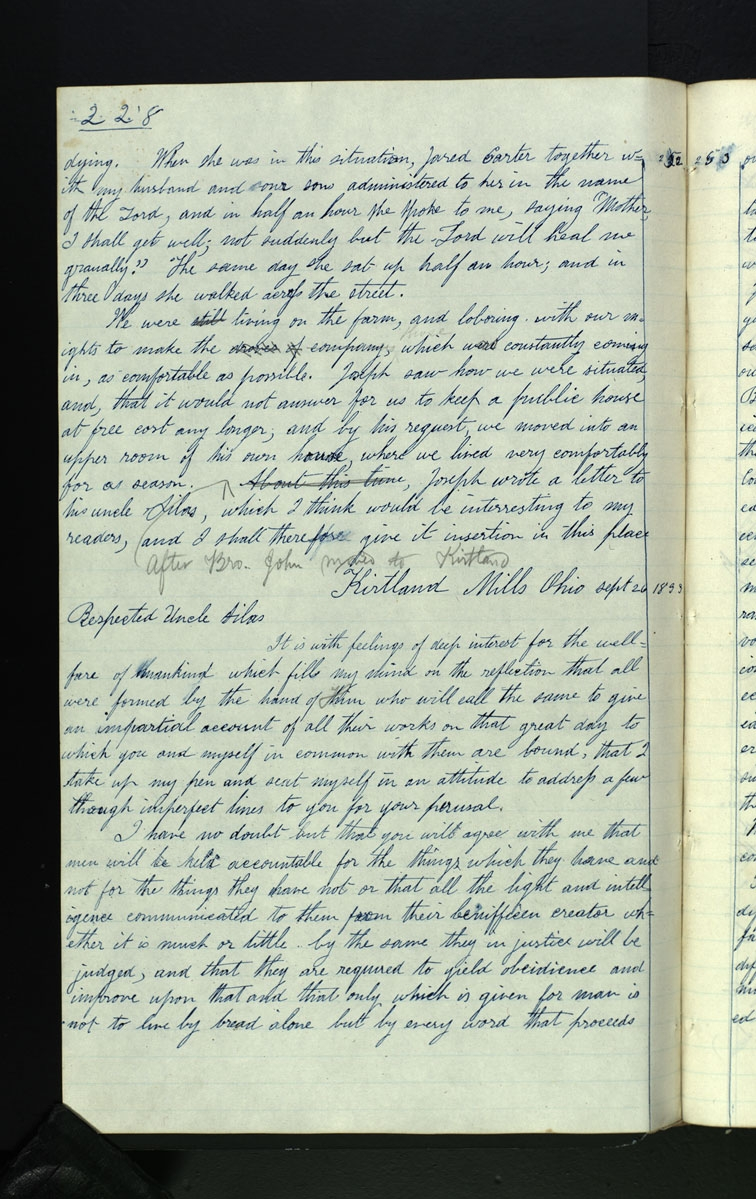 2 2 8
dying. When she was in this situation, Jared Carter together w=
ith my husband and our sons administered to her in the name
of the Lord, and in half an hour she spoke to me, saying "Mother,
I shall get well; not suddenly but the Lord will heal me
graually." The same day she sat up half an hour; and in
three days she walked across the street.
We were still living on the farm, and laboring with our m-
ights to make the company, which were constantly coming
in, as comfortable as possible. Joseph saw how we were situated,
and, that it would not answer for us to keep a public house
at free cost any longer; and by his request, we moved into an
upper room of his own house, where we lived very comfortably
for as season. About this time, Joseph wrote a letter to
his uncle Silas, which I think would be interresting to my
readers, and I shall therefore give it insertion in this place
After Bro. John moved to Kirtland
Kirtland Mills Ohio sept 26 1833
Respected Uncle Silas
It is with feelings of deep interest for the well=
fare of mankind which fills my mind on the reflection that all
were formed by the hand of Him who will call the same to give
an impartial account of all their works on that great day to
which you and myself in common with them are bound, that I
take up my pen and seat myself in an attitude to address a few
though imperfect lines to you for your perusal.
I have no doubt but that you will agree with me that
men will be held accountable for the things which they have and
not for the things they have not or that all the light and intell
igence communicated to them from their benifficen creator wh=
ether it is much or little by the same they in justice will be
judged, and that they are required to yield obeidience and
improve upon that and that only which is given for man is
not to live by bread alone but by every word that proceeds